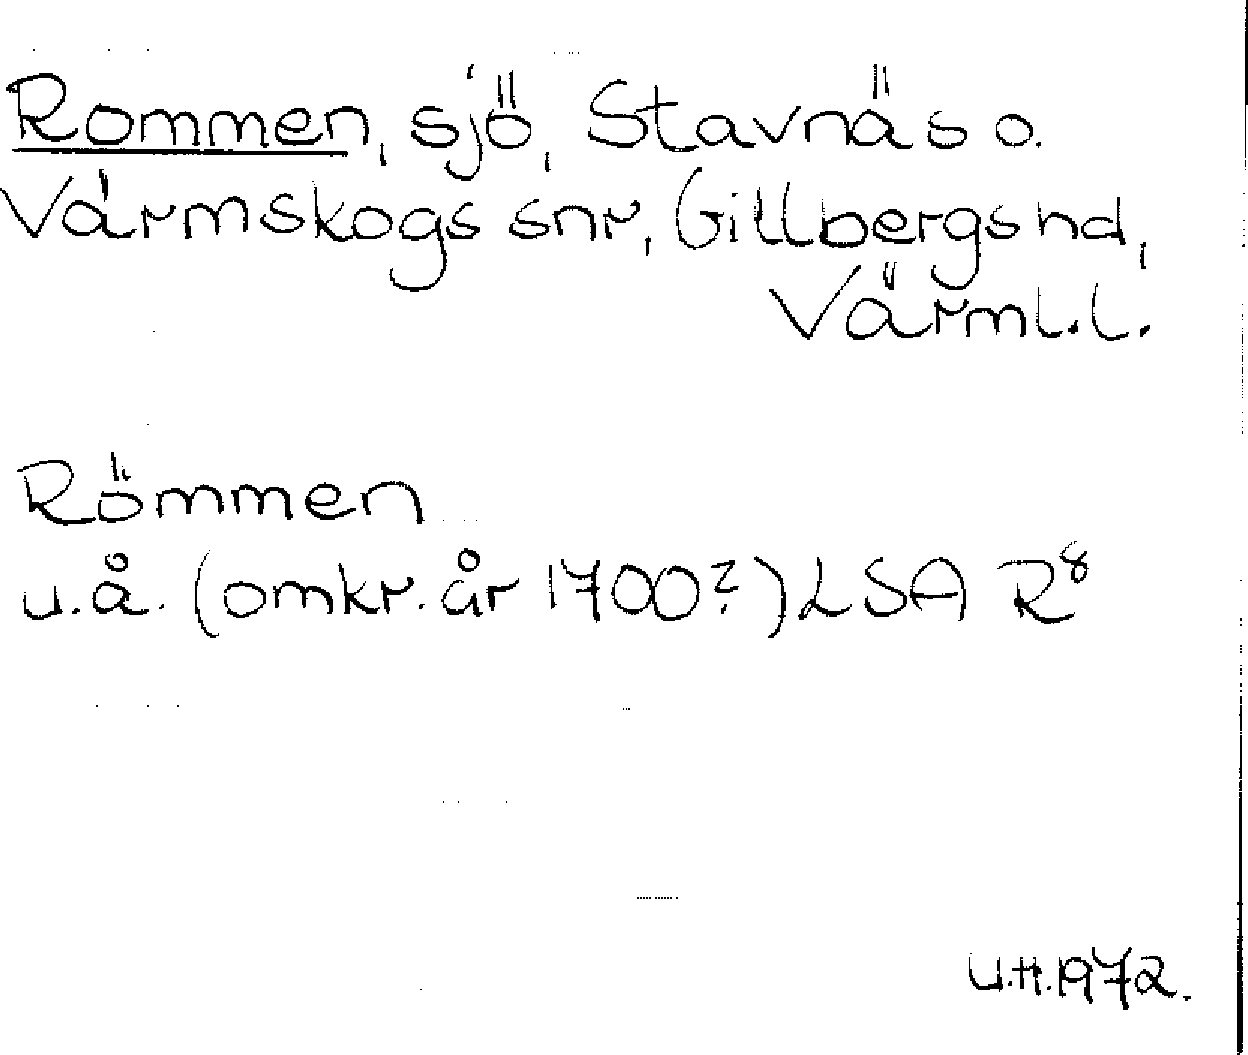 Rommen, sjö, Stavnäs o.
Värmskogs snr, Gillbergs hd,
Värml. l.
Römmen
u.å. (omkr. år 1700?) LSA R⁸
U.H. 1972.